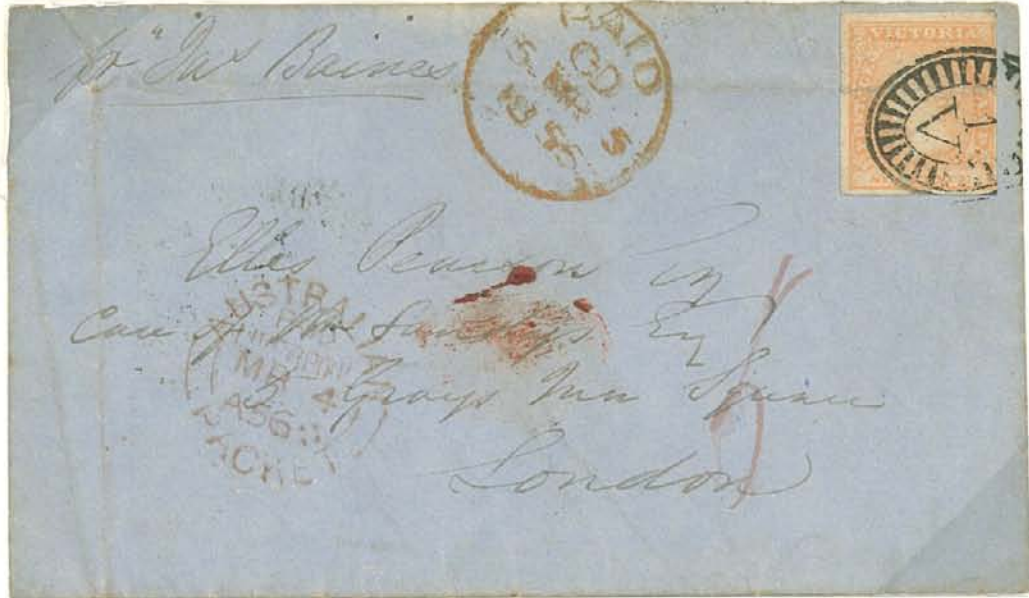 pr "Jas Baines
PAID
5 MR 5
VICTORIA
1
V
Ellis Pearson Esq
Care of Esq
3 Grays Inn Square
London
AUSTRALIAN
MR 4
1856
PACKET